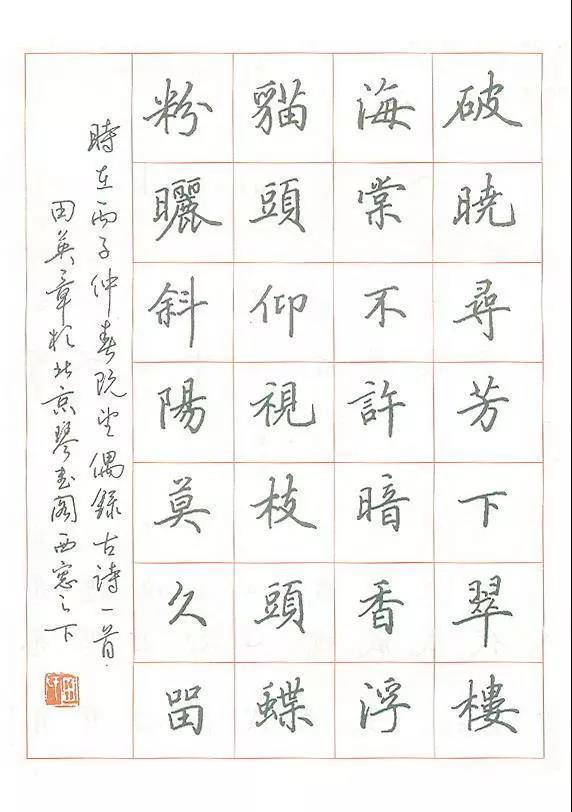 破曉尋芳下翠樓
海棠不許暗香浮
貓頭仰視枝頭蝶
粉曬斜陽莫久留
時在丙子仲春既望偶錄古詩一首
田英章於北京琴書閣西窗之下